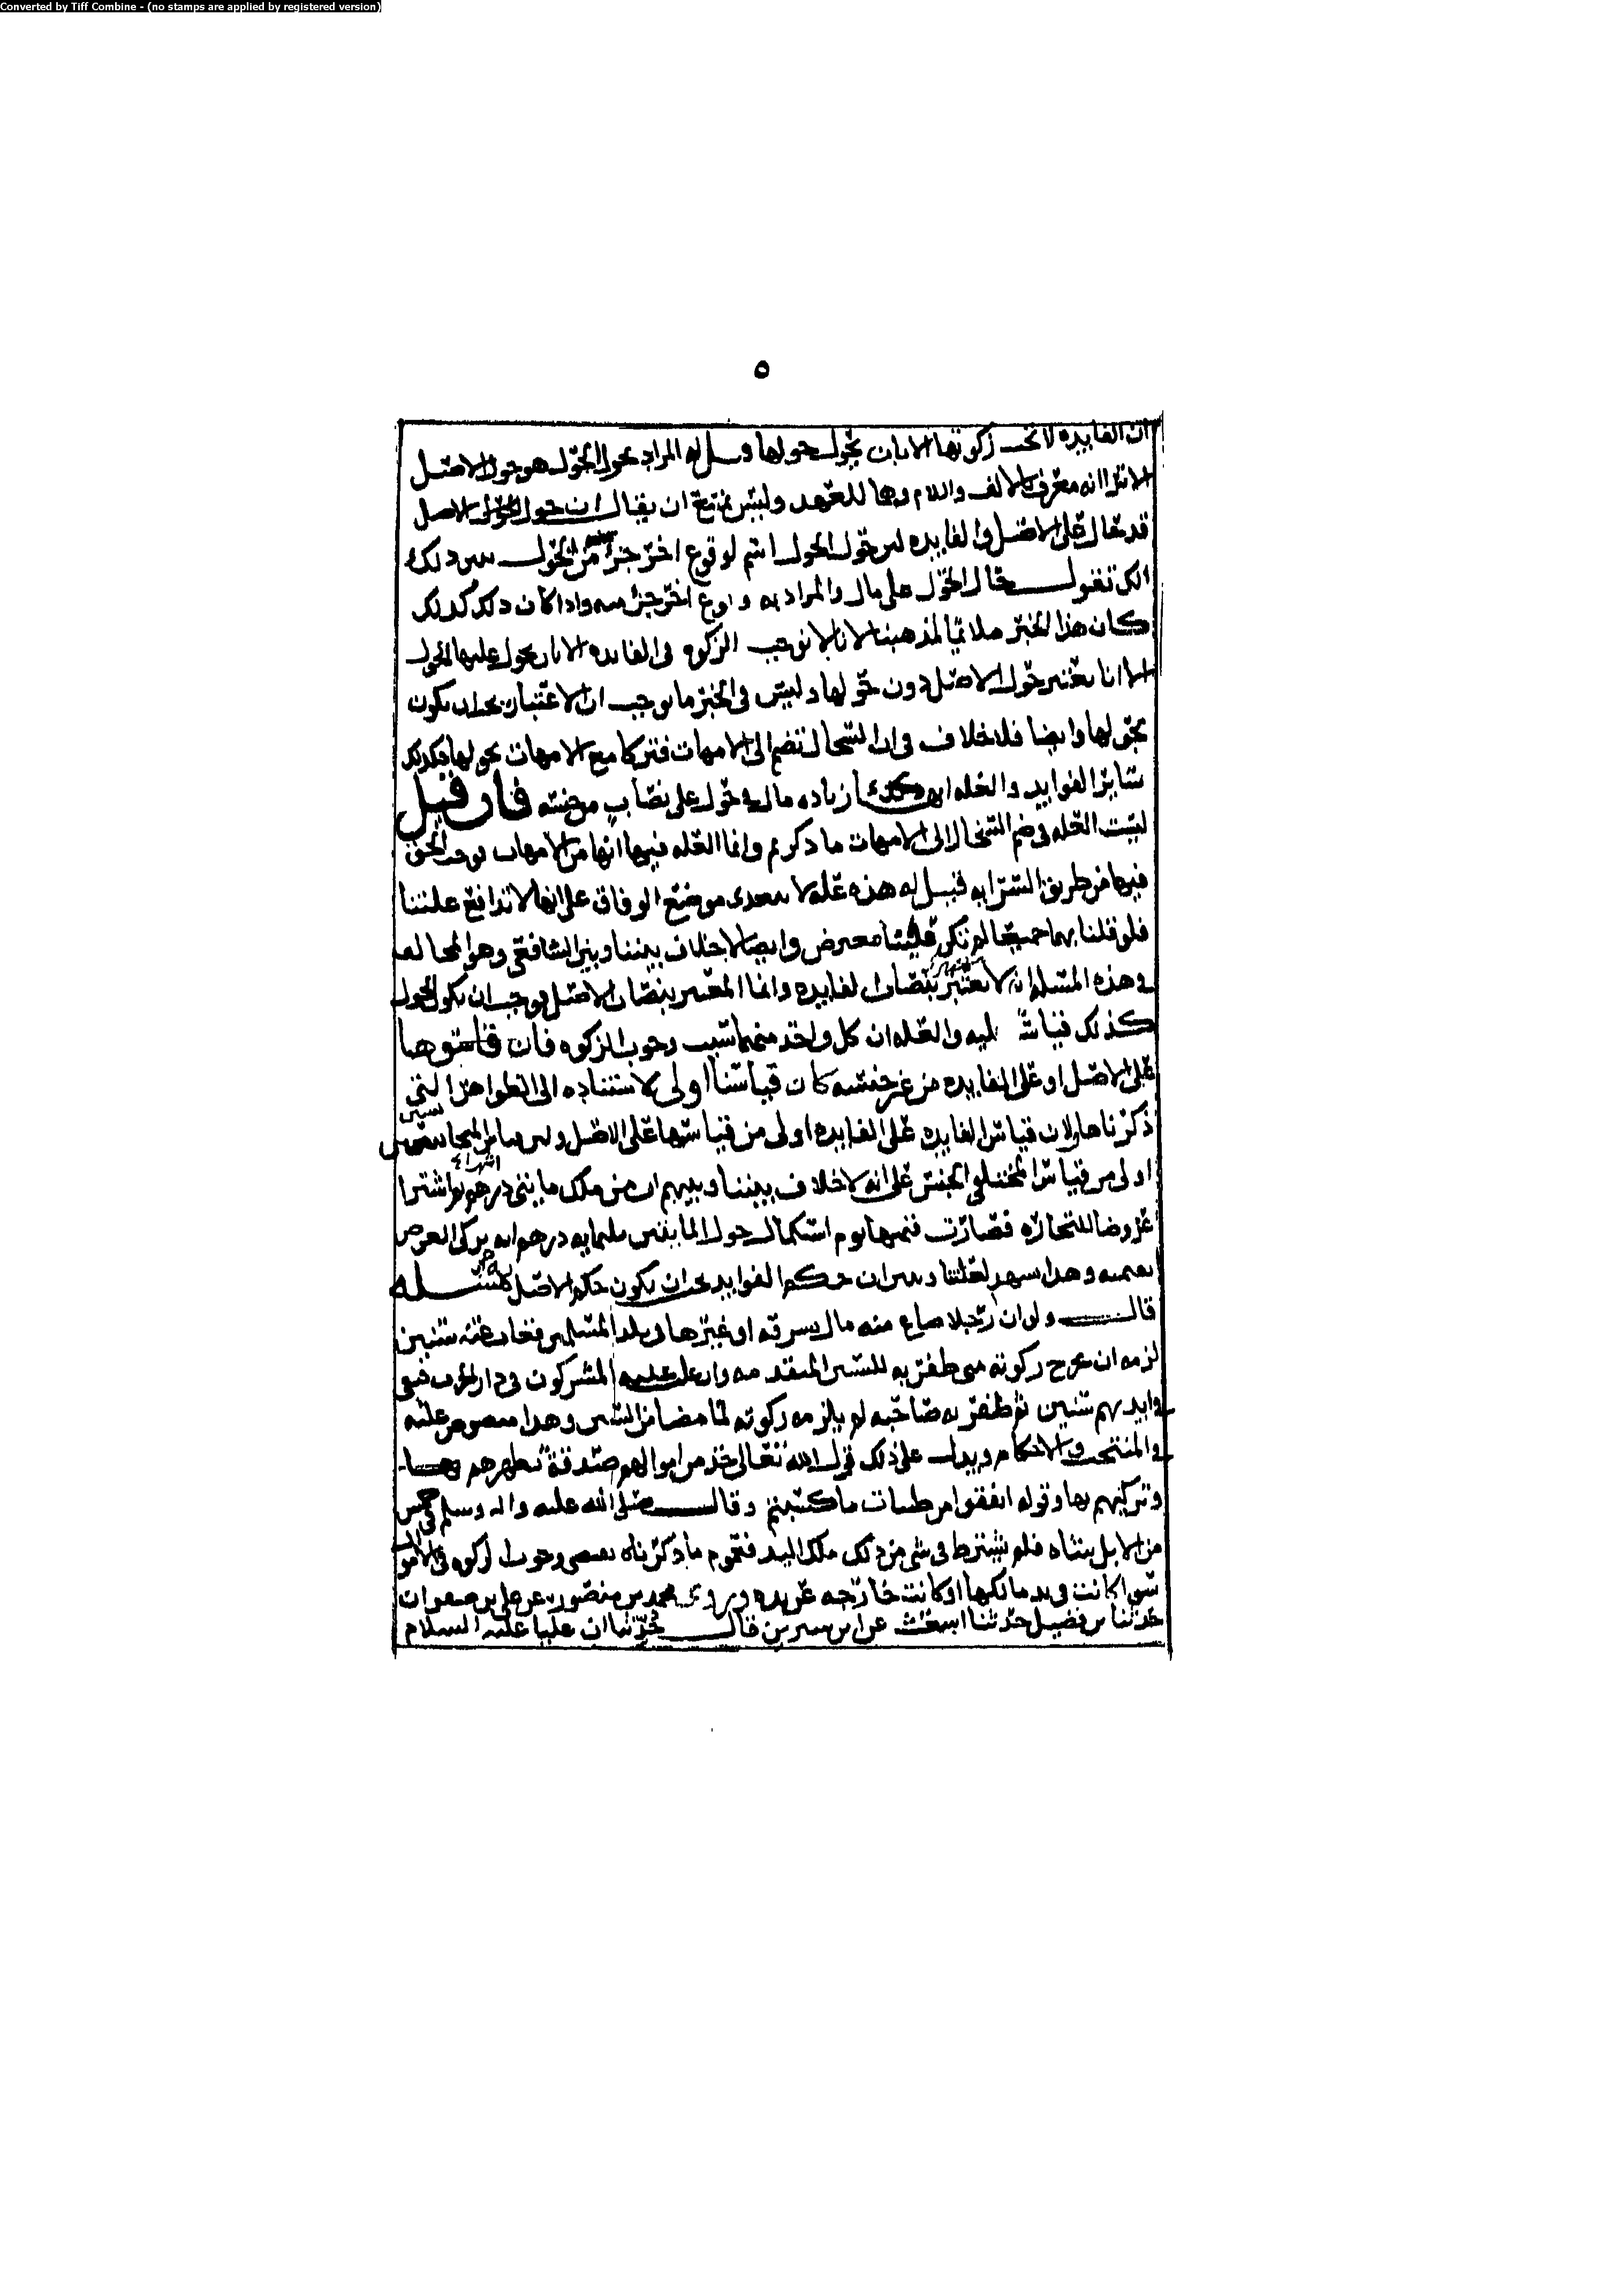 Converted by Tiff Combine - (no stamps are applied by registered version)
٥
ان الفايده لا تجب زكوتها الا بان يحول حولها قيل له المراد بحول الحول هو حول الاصل
الا ترا انه معرف بالالف واللام وهما للعهد وليس يمتنع ان يقال ان حول الحول الاصل
قد يقال على الاصل والفايده لان حول الحول اسم لوقوع اخر جزء من الحول يبين ذلك
انك تقول حال الحول على مال والمراد به وقوع اخر جزء منه واذا كان ذلك كذلك
كان هذا الخبر ملائما لمذهبنا لانا لا نوجب الزكوه في الفايده الا بان يحول عليها الحول
الا انا نعتبر حول الاصل دون حولها وليس في الخبر ما يوجب ان الاعتبار يجب ان يكون
بحولها وايضا فلا خلاف في ان السخال تضم الى الامهات فتزكا مع الامهات بحولها فكذلك
سائر الفوايد والعله انه زياده مال في حول على نصاب من جنسه فان قيل
ليست العله في ضم السخال الى الامهات ما ذكرتم وانما العله فيها انها من الامهات فوجب الحق
فيها من طريق السرايه قيل له هذه عله لا تتعدى موضع الوفاق على انها لا تدافع علتنا
فلو قلنا بهما جميعا لم يكن قياسنا معترض وايضا لا خلاف بيننا وبين الشافعي وهو المخالف
في هذه المسله انه لا يعتبر بنصاب الفايده وانما المعتبر بنصاب الاصل فوجب ان يكون الحول
كذلك قياسا عليه والعله ان كل واحد منهما سبب وجوب الزكوه فان قاسوها
على الاصل او على الفايده من غير جنسه كان قياسنا اولى لاستناده الى الظواهر التي
ذكرناها ولان قياس الفايده على الفايده اولى من قياسها على الاصل وقياس المتجانسين
اولى من قياس المختلفي الجنس على انه لا خلاف بيننا وبينهم ان من ملك مايتي درهم ثم اشترا
عروضا للتجاره فصارت قيمتها يوم استكمال حول المايتين ثلثمايه درهم انه يزكي العروض
بقيمته وهذا يشهد لعلتنا ويبين ان حكم الفوايد يجب ان يكون حكم الاصل مسله
قال ولو ان رجلا ضاع منه مال بسرقه او غيرها في بلد المسلمين فغاب عنه سنين
لزمه ان يخرج زكوته متى ظفر به للسنين المتقدمه وان غلب عليه المشركون في دار الحرب فبقي
في ايديهم سنين ثم ظفر به صاحبه لم يلزمه زكوته لما مضا من السنين وهذا منصوص عليه
في المنتخب والاحكام ويدل على ذلك قول الله تعالى خذ من اموالهم صدقة تطهرهم بها
وتزكيهم بها وقوله انفقوا من طيبات ما كسبتم وقال صلى الله عليه واله وسلم في خمس
من الابل شاه فلم يشترط في شي من ذلك ملك اليد فعموم ما ذكرناه يقتضي وجوب الزكوه في الاموال
سوا كانت في يد مالكها او كانت خارجه عن يده وروى محمد بن منصور عن علي بن
حدثنا بن فضيل حدثنا اشعث عن ابن سيرين قال حدثنا ان عليا عليه السلام